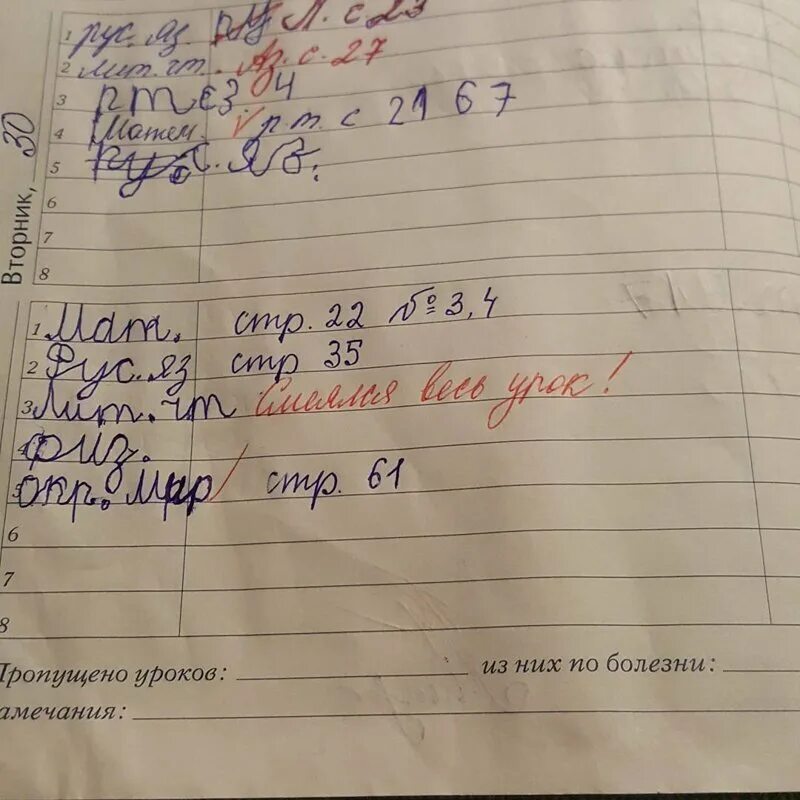 1 рус. яз. Л. с 23
2 Лит. чт. Аз. с. 27
3 р т с 3. 4
4 Матем. √ р. т. с 21 6 7
5 Рус. яз.
6
7
8
Вторник, 30
1 Мат. стр. 22 № 3,4
2 Рус. яз стр 35
3 Лит. чт Смеялся весь урок!
физ.
5 окр. Мир стр. 61
6
7
8
Пропущено уроков: из них по болезни:
амечания: